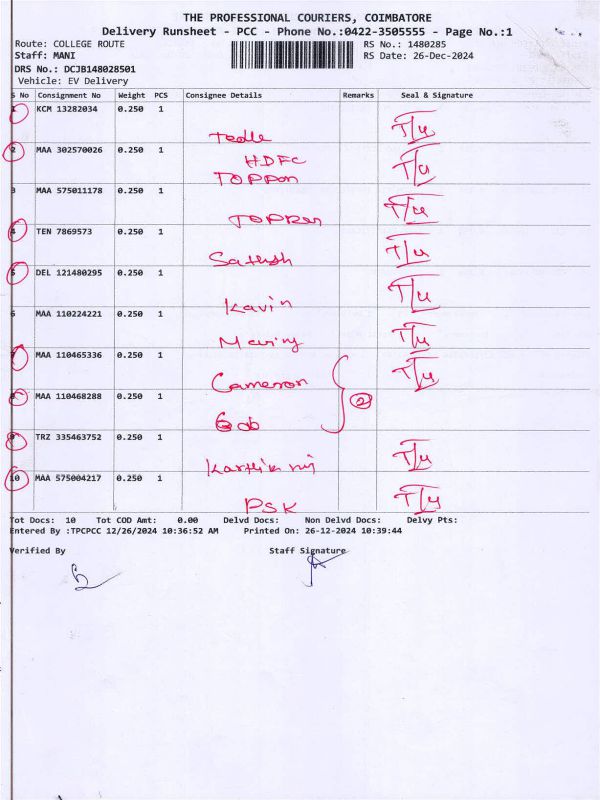 THE PROFESSIONAL COURIERS, COIMBATORE
Delivery Runsheet - PCC - Phone No.:0422-3505555 - Page No.:1
Route: COLLEGE ROUTE RS No.: 1480285
Staff: MANI RS Date: 26-Dec-2024
DRS No.: DCJB148028501
Vehicle: EV Delivery
S No Consignment No Weight PCS Consignee Details Remarks Seal & Signature
1 KCM 13282034 0.250 1
T/u
2 MAA 302570026 0.250 1
HDFC
TOPPAN T/u
3 MAA 575011178 0.250 1
T/u
4 TEN 7869573 0.250 1
Sathish T/u
5 DEL 121480295 0.250 1
Kavin T/u
6 MAA 110224221 0.250 1
T/u
7 MAA 110465336 0.250 1
Cameron T/u
8 MAA 110468288 0.250 1
2
9 TRZ 335463752 0.250 1
T/u
10 MAA 575004217 0.250 1
PSK T/u
Tot Docs: 10 Tot COD Amt: 0.00 Delvd Docs: Non Delvd Docs: Delvy Pts:
Entered By :TPCPCC 12/26/2024 10:36:52 AM Printed On: 26-12-2024 10:39:44
Verified By Staff Signature